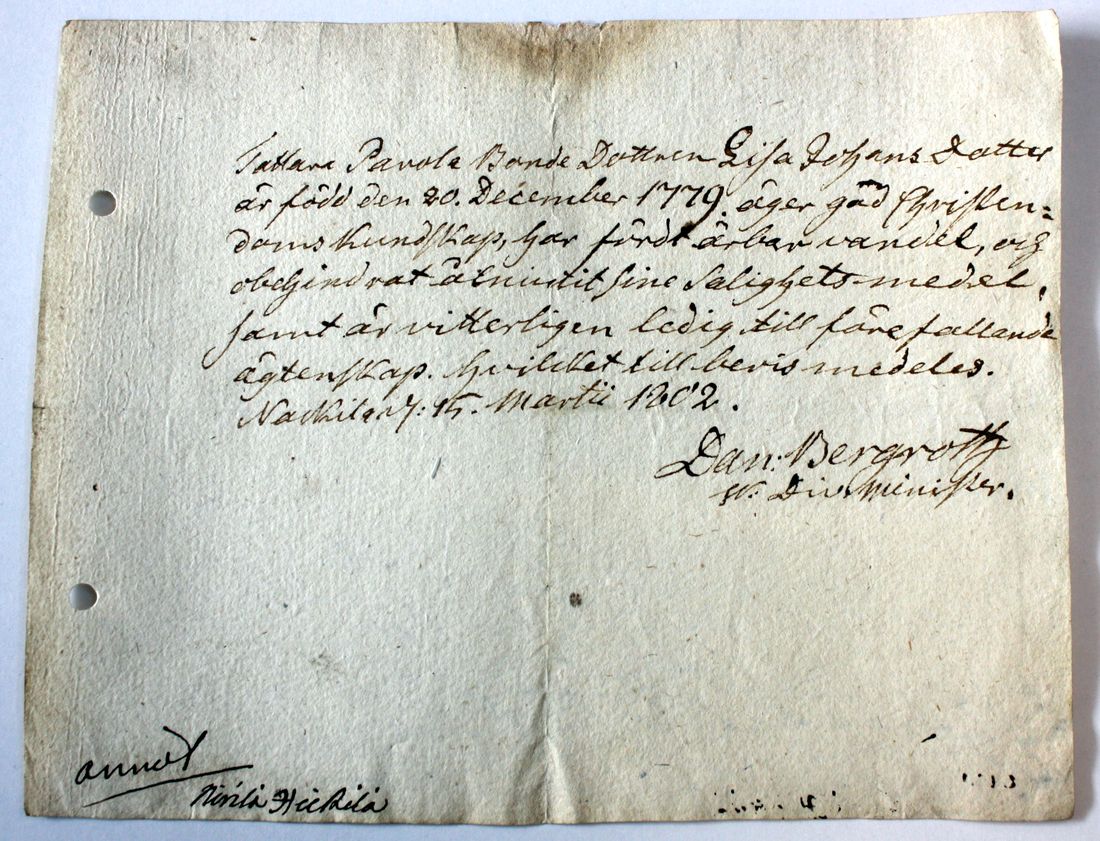 Tattara Pavola Bonde Dottren Lisa Johans Dotter
är född den 20. December 1779. äger god Christen=
doms kundskap, har fördt ärbar vandel, och
obehindrat åtniutit sine Salighets medel,
samt är vitterligen ledig till före fallande
ägtenskap. hvilcket till bevis medeles.
Nackila d. 15. Martii 1802.
Dan: Bergroth
V. Div. Minister.
annot
Hickilä